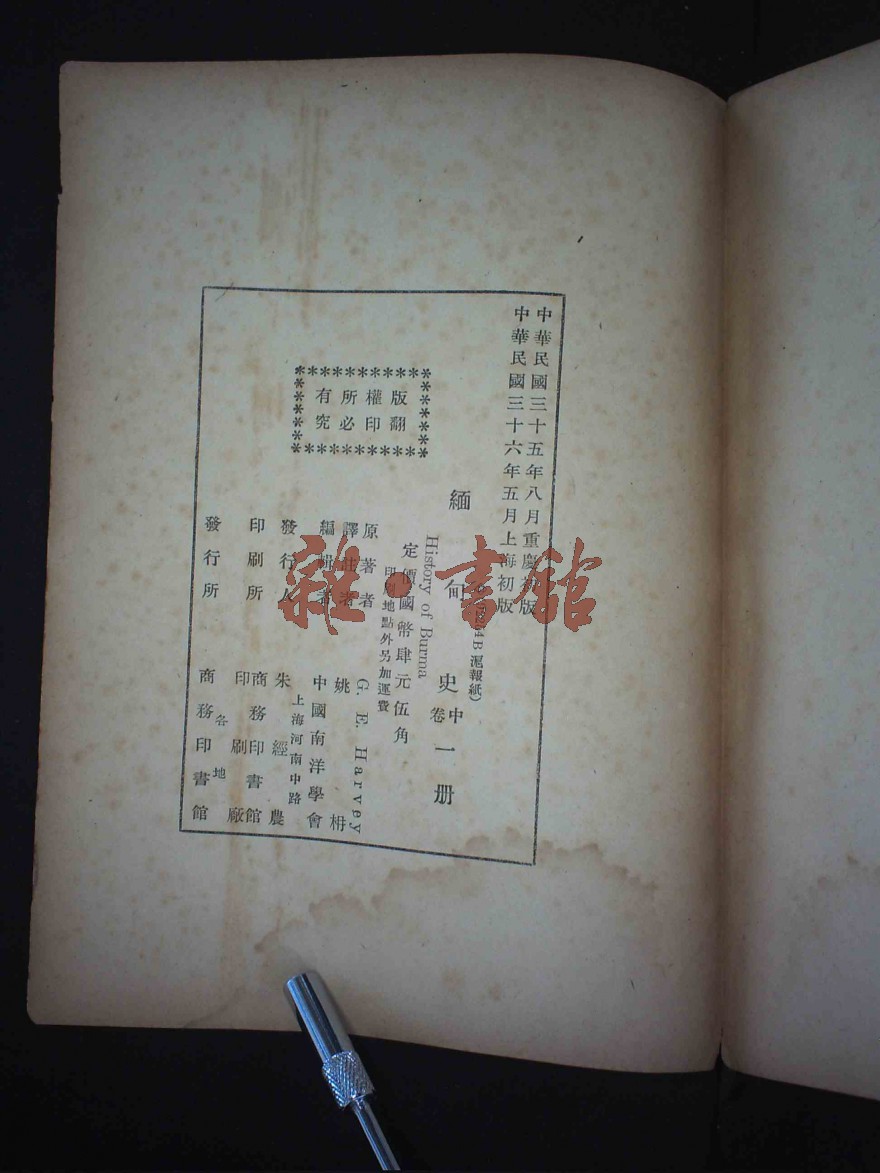 中華民國三十五年八月重慶初版
中華民國三十六年五月上海初版
B滬報紙)
緬甸史 中卷 一册
History of Burma
定價國幣肆元伍角
印刷地點外另加運費
版權所有
翻印必究
原著者 G. E. Harvey
譯註者 姚枬
編輯者 中國南洋學會
發行人 朱經農
上海河南中路
印刷所 商務印書館
印刷廠
發行所 各地
商務印書館
雜·書館